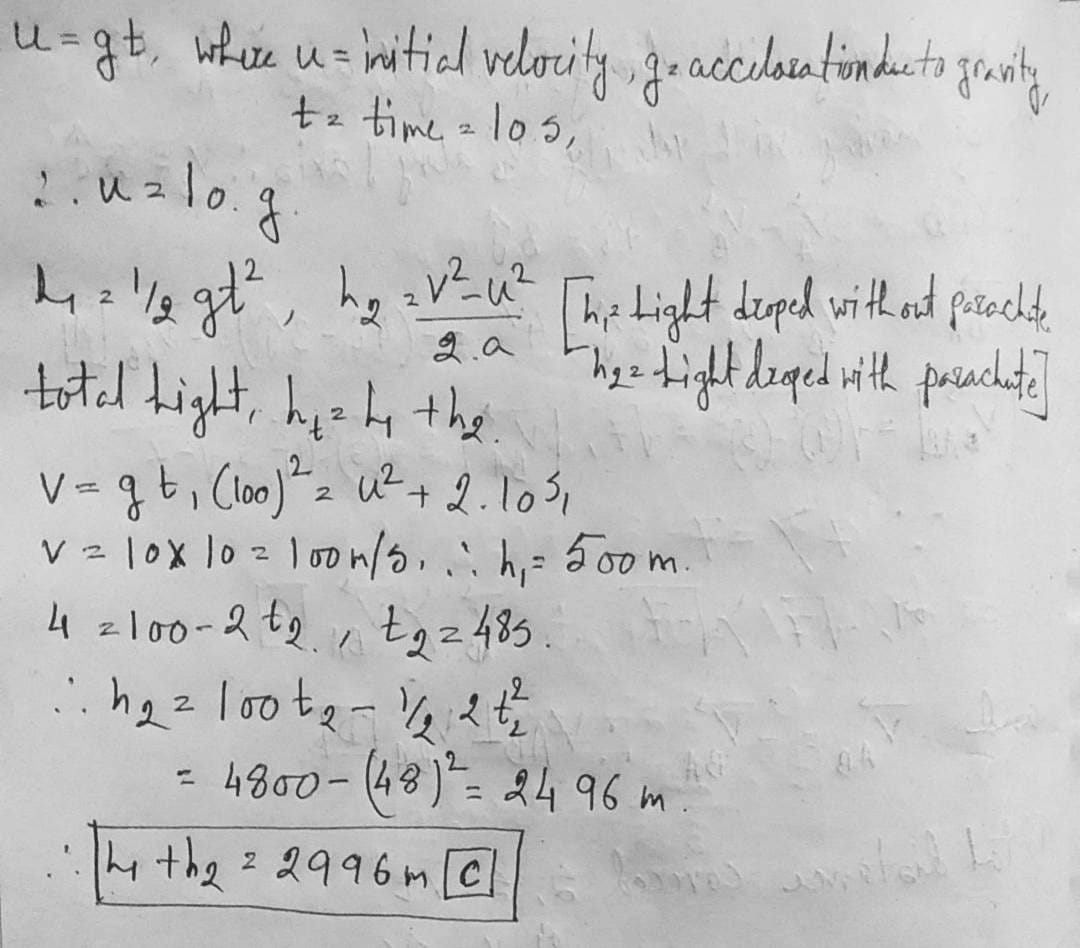 u = gt, where u = initial velocity, g = accelaration due to gravity,
t = time = 10 s,
∴ u = 10. g.
h₁ = 1/2 gt², h₂ = (v² - u²)/2.a [h₁ = hight droped with out parachute
h₂ = hight droped with parachute]
total hight, hₜ = h₁ + h₂.
v = gt, (100)² = u² + 2.10 s,
v = 10 x 10 = 100 m/s, ∴ h₁ = 500 m.
4 = 100 - 2 t₂, t₂ = 48s.
∴ h₂ = 100 t₂ - 1/2 2 t₂²
= 4800 - (48)² = 2496 m.
∴ h₁ + h₂ = 2996 m C